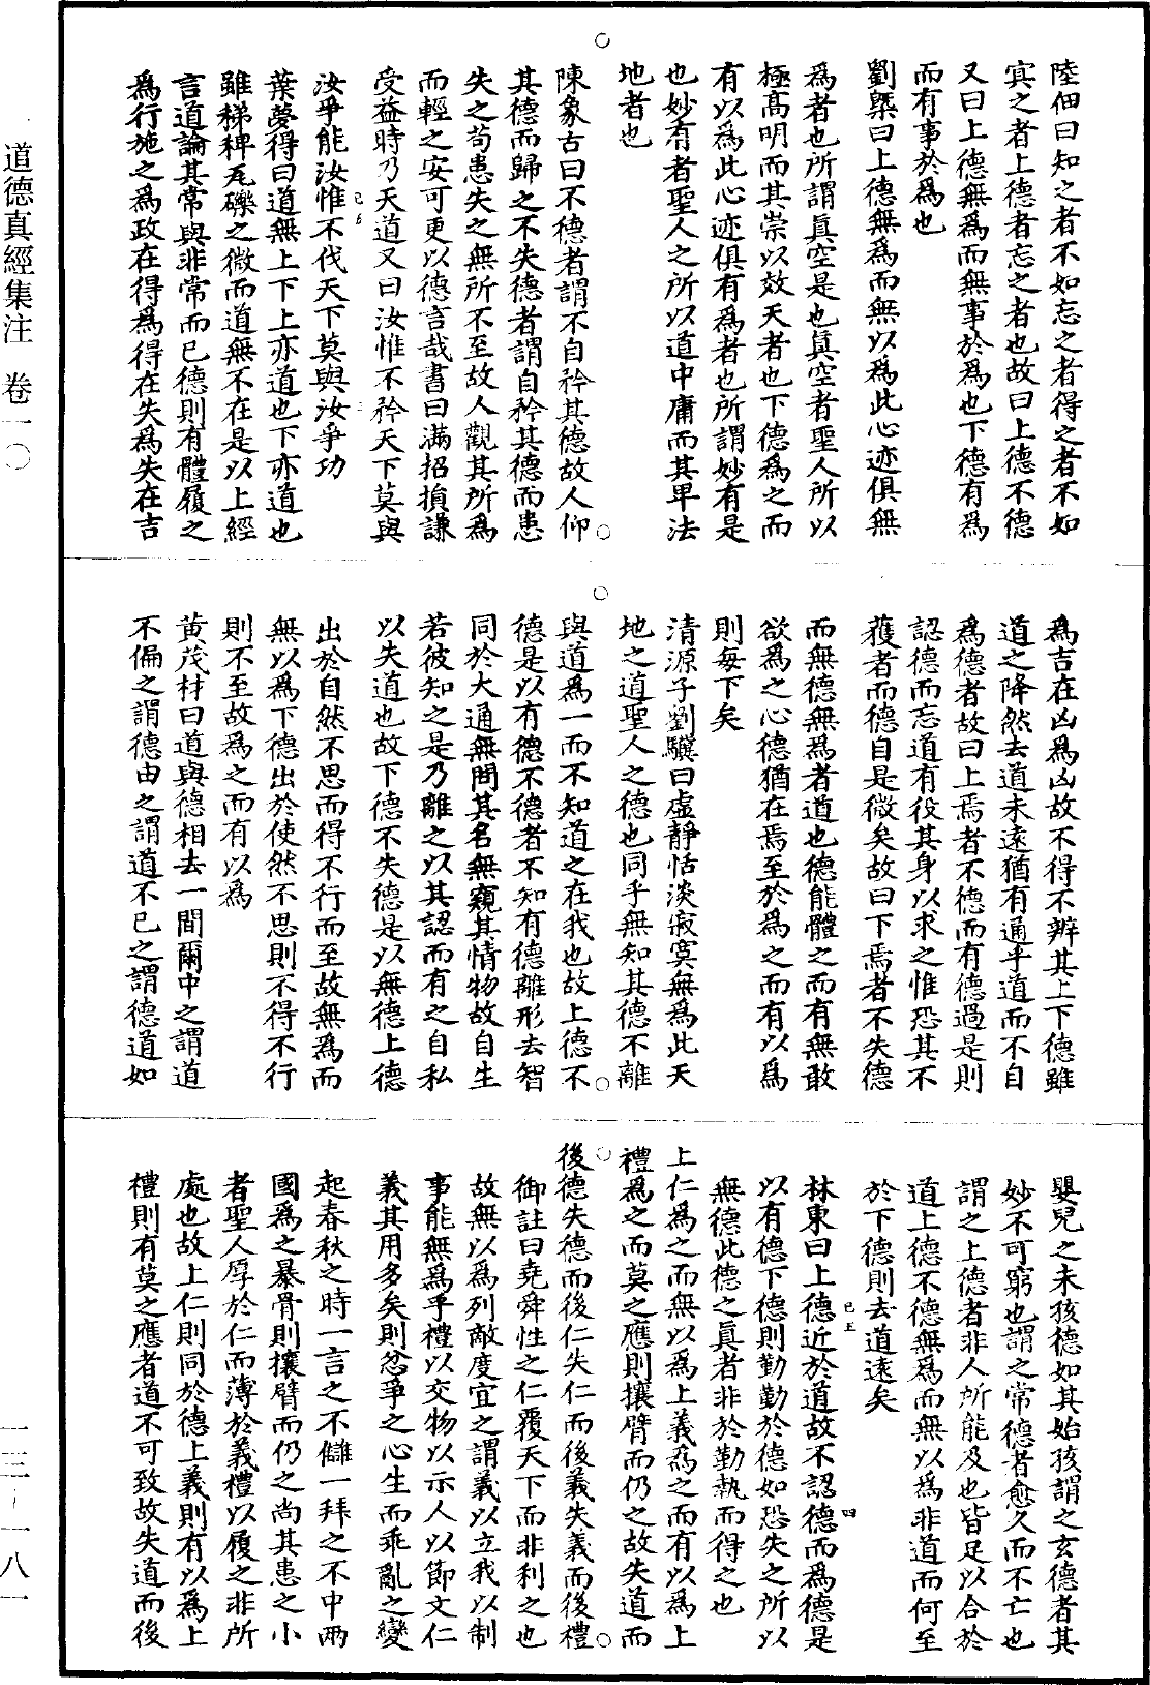 道德真經集注　卷一〇
陸佃曰知之者不如忘之者得之者不如
冥之者上德者忘之者也故曰上德不德
又曰上德無爲而無事於爲也下德有爲
而有事於爲也
劉槩曰上德無爲而無以爲此心迹俱無
爲者也所謂真空是也真空者聖人所以
極髙明而其崇以效天者也下德爲之而
有以爲此心迹俱有爲者也所謂妙有是
也妙有者聖人之所以道中庸而其卑法
地者也
陳象古曰不德者謂不自矜其德故人仰
其德而歸之不失德者謂自矜其德而患
失之苟患失之無所不至故人觀其所爲
而輕之安可更以德言哉書曰滿招損謙
受益時乃天道又曰汝惟不矜天下莫與
汝爭能汝惟不伐天下莫與汝爭功
葉夢得曰道無上下上亦道也下亦道也
雖稊稗瓦礫之微而道無不在是以上經
言道論其常與非常而已德則有體履之
爲行施之爲政在得爲得在失爲失在吉
爲吉在凶爲凶故不得不辨其上下德雖
道之降然去道未遠猶有通乎道而不自
爲德者故曰上焉者不德而有德過是則
認德而忘道有役其身以求之惟恐其不
獲者而德自是微矣故曰下焉者不失德
而無德無爲者道也德能體之而有無敢
欲爲之心德猶在焉至於爲之而有以爲
則每下矣
清源子劉驥曰虛靜恬淡寂寞無爲此天
地之道聖人之德也同乎無知其德不離
與道爲一而不知道之在我也故上德不
德是以有德不德者不知有德離形去智
同於大通無問其名無窺其情物故自生
若彼知之是乃離之以其認而有之自私
以失道也故下德不失德是以無德上德
出於自然不思而得不行而至故無爲而
無以爲下德出於使然不思則不得不行
則不至故爲之而有以爲
黄茂材曰道與德相去一間爾中之謂道
不偏之謂德由之謂道不已之謂德道如
嬰兒之未孩德如其始孩謂之玄德者其
妙不可窮也謂之常德者愈久而不亡也
謂之上德者非人所能及也皆足以合於
道上德不德無爲而無以爲非道而何至
於下德則去道遠矣
林東曰上德近於道故不認德而爲德是
以有德下德則勤勤於德如恐失之所以
無德此德之真者非於勤執而得之也
上仁爲之而無以爲上義爲之而有以爲上
禮爲之而莫之應則攘臂而仍之故失道而
後德失德而後仁失仁而後義失義而後禮
御註曰堯舜性之仁覆天下而非利之也
故無以爲列敵度宜之謂義以立我以制
事能無爲乎禮以交物以示人以節文仁
義其用多矣則忿爭之心生而乖亂之變
起春秋之時一言之不讎一拜之不中兩
國爲之暴骨則攘臂而仍之尚其患之小
者聖人厚於仁而薄於義禮以履之非所
處也故上仁則同於德上義則有以爲上
禮則有莫之應者道不可致故失道而後
一三—一八一